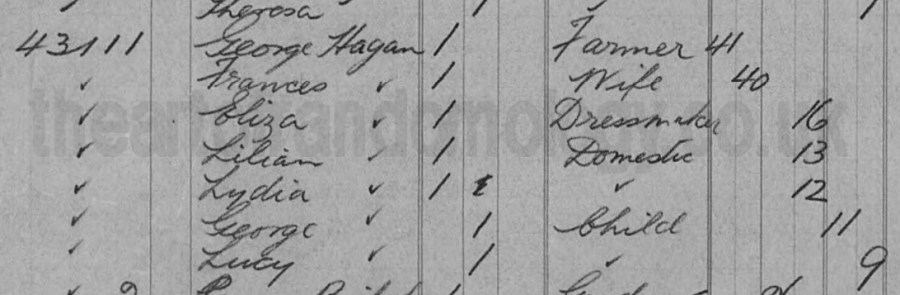 Theresa 1 1
43111 George Hagan 1 Farmer 41
✓ Frances ✓ 1 Wife 40
✓ Eliza ✓ 1 Dressmaker 16
✓ Lilian ✓ 1 Domestic 13
✓ Lydia ✓ 1 ✓ 12
✓ George ✓ 1 Child 11
✓ Lucy ✓ 1 ✓ 9